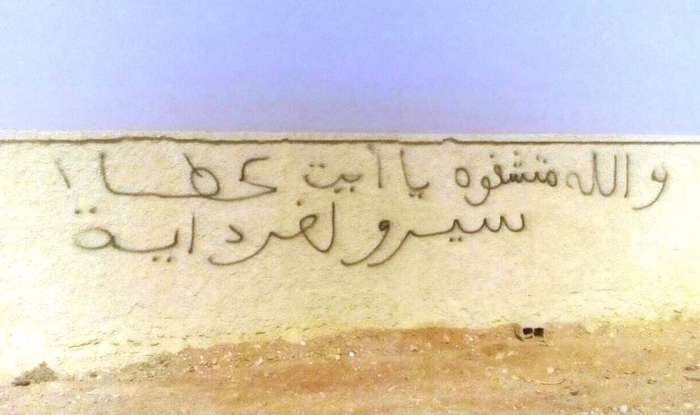 والله متشفوه يا أيت عطا!
سيرو لغرداية